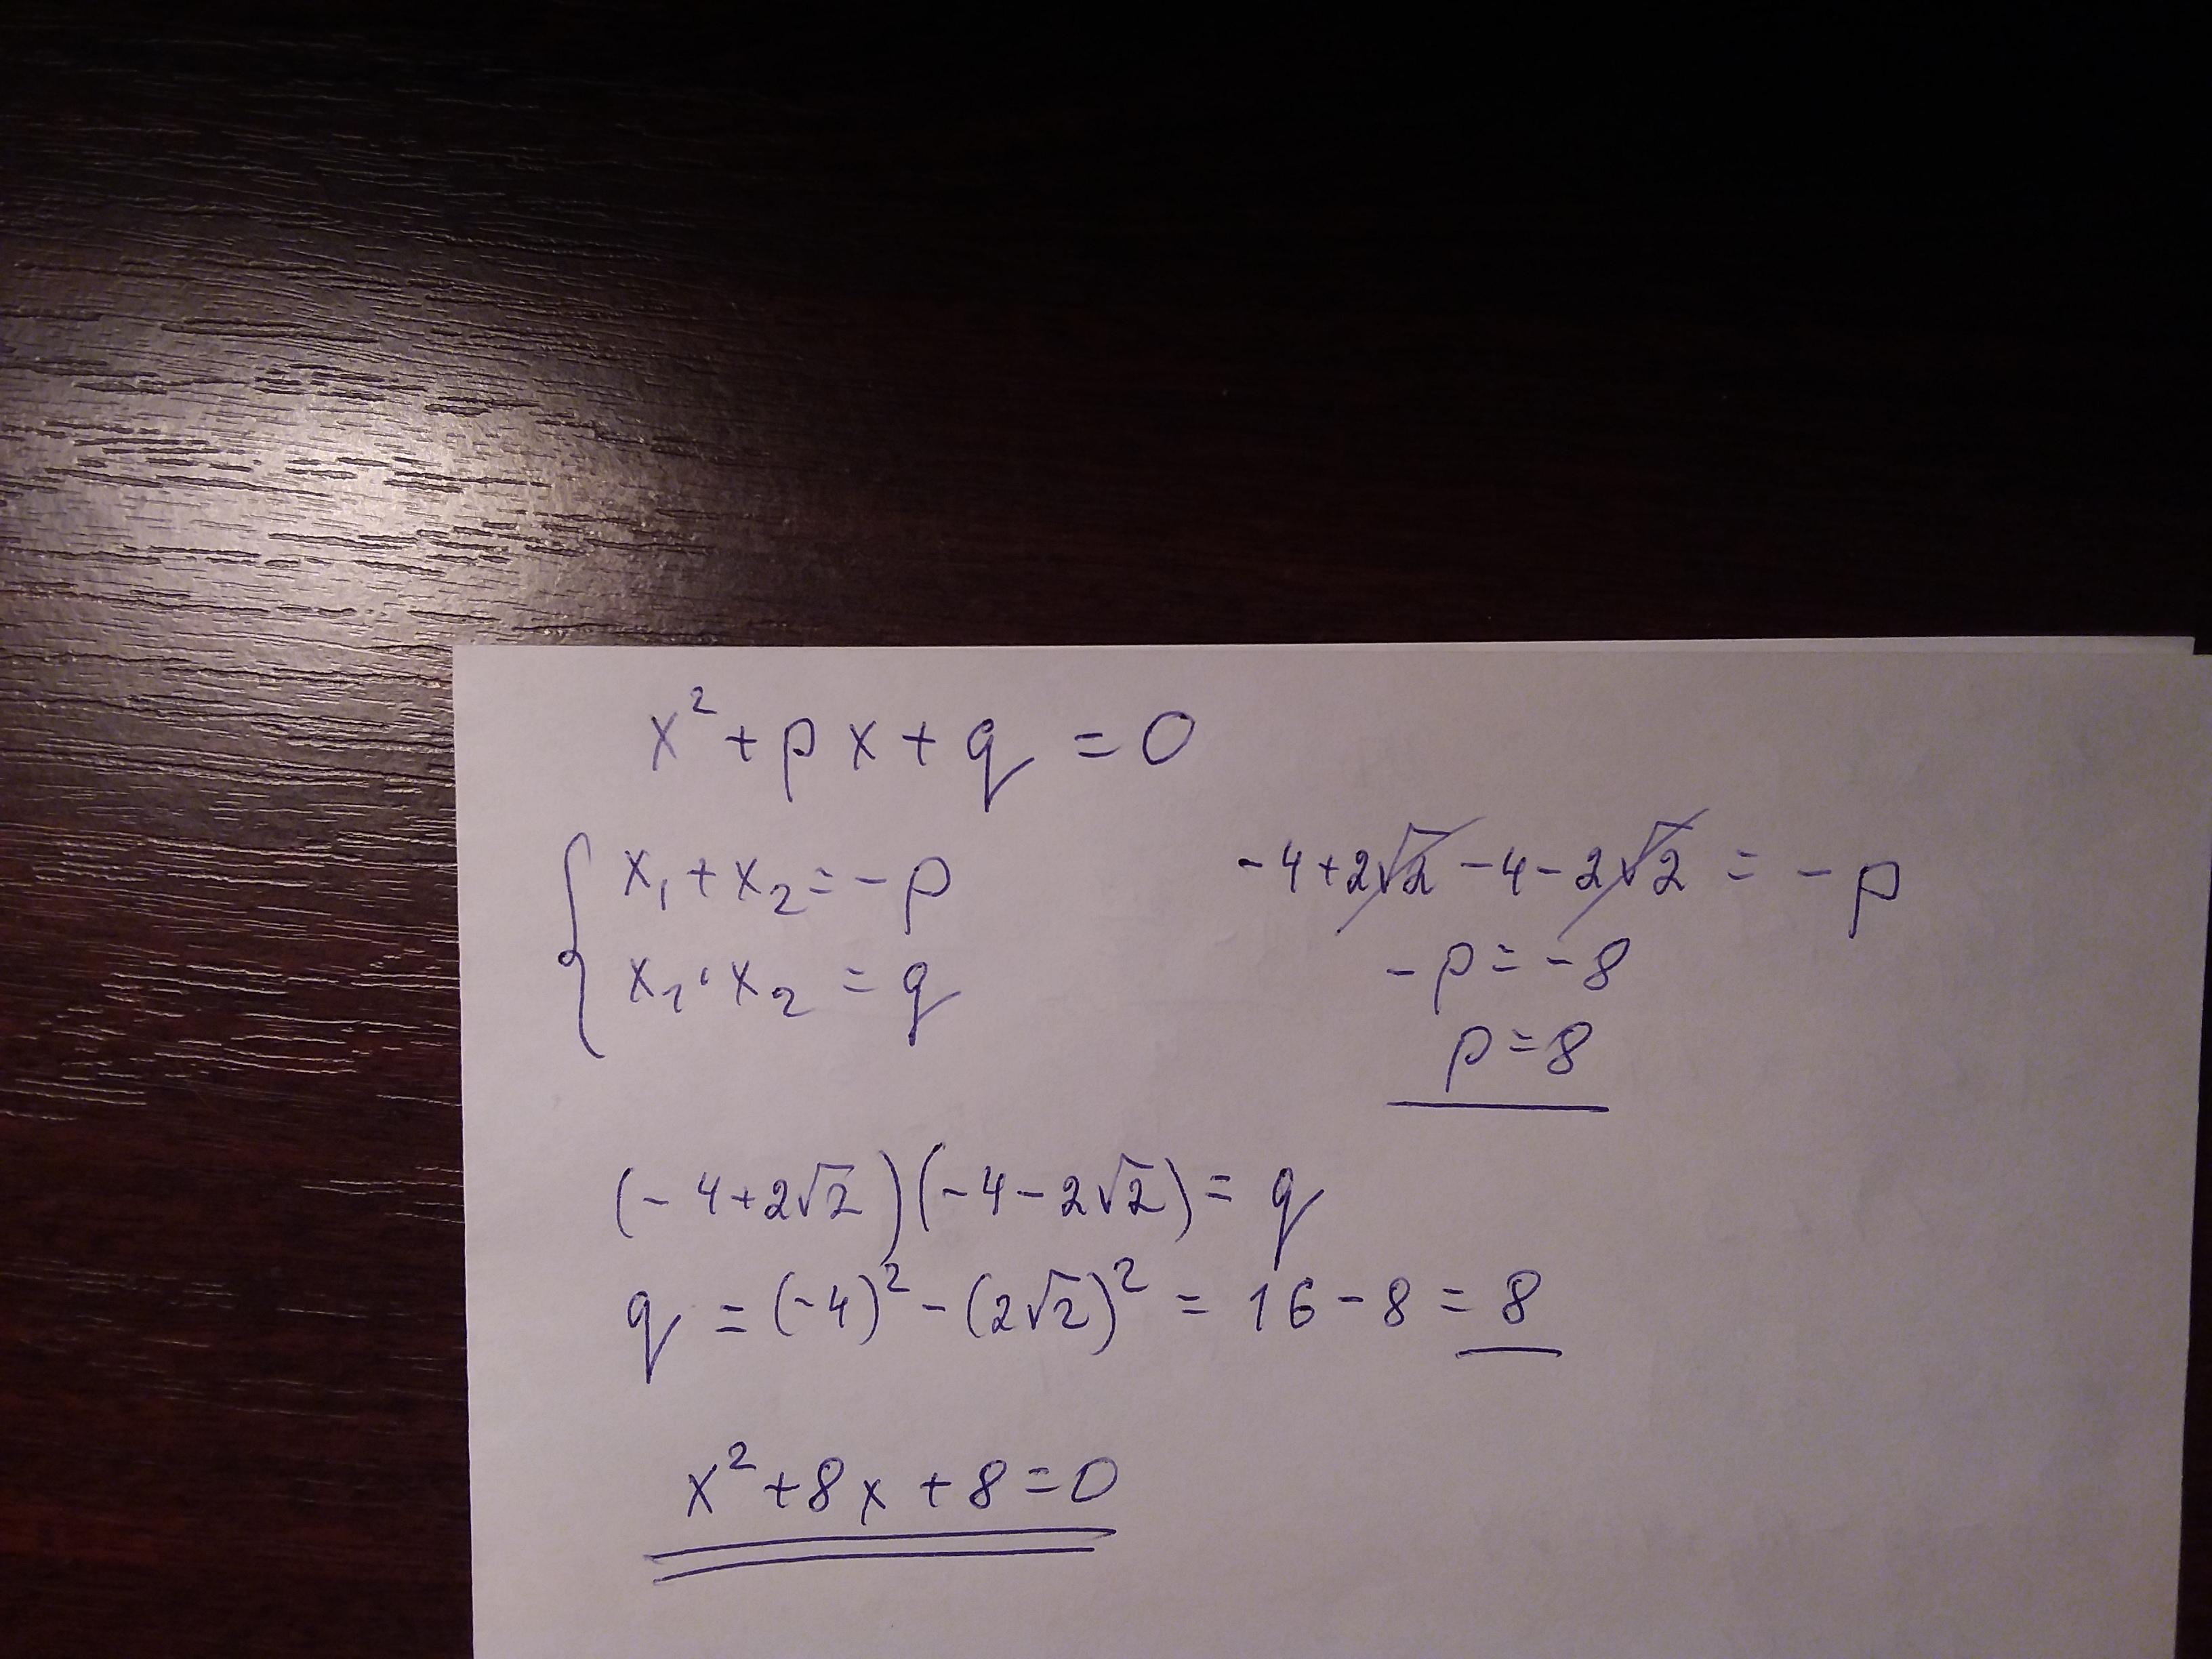 x² + px + q = 0
{ x₁ + x₂ = -p
x₁ · x₂ = q
-4+2√2 -4-2√2 = -p
-p = -8
p = 8
(-4+2√2)(-4-2√2) = q
q = (-4)² - (2√2)² = 16 - 8 = 8
x² + 8x + 8 = 0